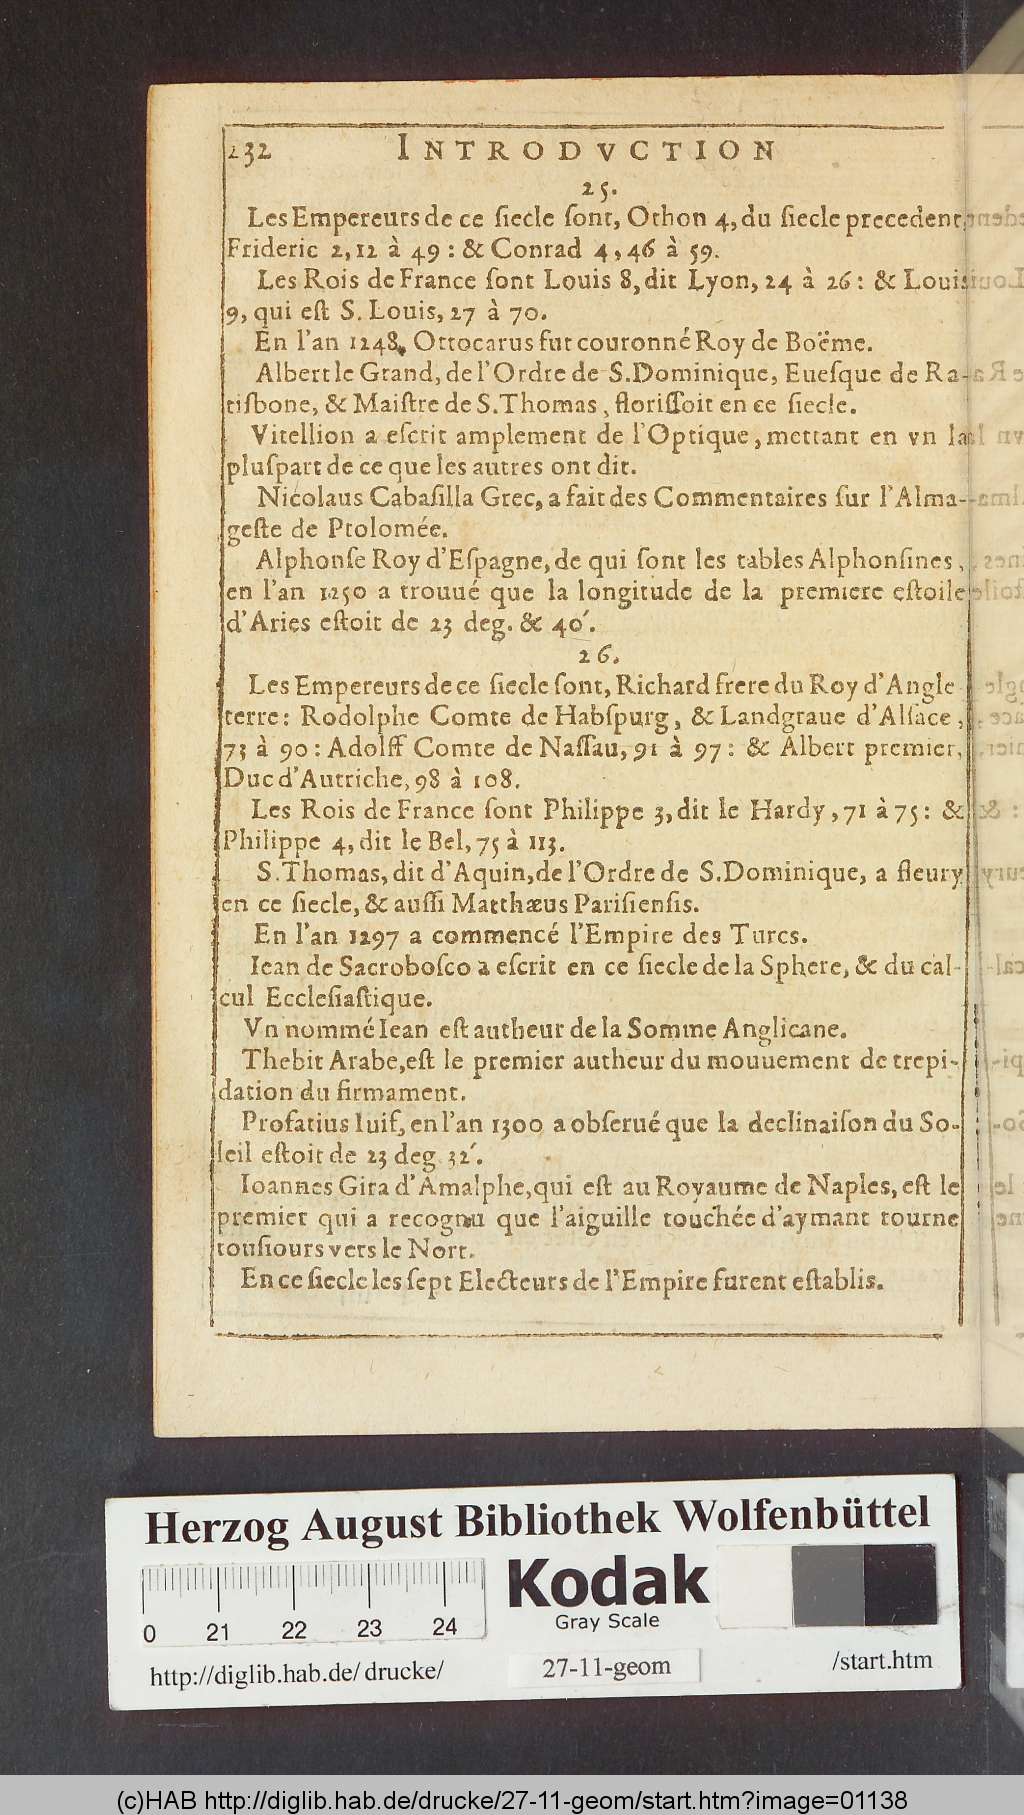 232 INTRODVCTION
25.
Les Empereurs de ce ſiecle ſont, Othon 4, du ſiecle precedent,
Frideric 2, 12 à 49 : & Conrad 4, 46 à 59.
Les Rois de France ſont Louis 8, dit Lyon, 24 à 26 : & Louis
9, qui eſt S. Louis, 27 à 70.
En l'an 1248, Ottocarus fut couronné Roy de Boëme.
Albert le Grand, de l'Ordre de S. Dominique, Eueſque de Ra-
tiſbone, & Maiſtre de S. Thomas, floriſſoit en ce ſiecle.
Vitellion a eſcrit amplement de l'Optique, mettant en vn la
pluſpart de ce que les autres ont dit.
Nicolaus Cabaſilla Grec, a fait des Commentaires ſur l'Alma-
geſte de Ptolomée.
Alphonſe Roy d'Eſpagne, de qui ſont les tables Alphonſines,
en l'an 1250 a trouué que la longitude de la premiere eſtoile
d'Aries eſtoit de 23 deg. & 40´.
26.
Les Empereurs de ce ſiecle ſont, Richard frere du Roy d'Angle
terre : Rodolphe Comte de Habſpurg, & Landgraue d'Alſace,
73 à 90 : Adolff Comte de Naſſau, 91 à 97 : & Albert premier,
Duc d'Autriche, 98 à 108.
Les Rois de France ſont Philippe 3, dit le Hardy, 71 à 75 : &
Philippe 4, dit le Bel, 75 à 113.
S. Thomas, dit d'Aquin, de l'Ordre de S. Dominique, a fleury
en ce ſiecle, & auſſi Matthæus Pariſienſis.
En l'an 1297 a commencé l'Empire des Turcs.
Iean de Sacroboſco a eſcrit en ce ſiecle de la Sphere, & du cal-
cul Eccleſiaſtique.
Vn nommé Iean eſt autheur de la Somme Anglicane.
Thebit Arabe, eſt le premier autheur du mouuement de trepi-
dation du firmament.
Profatius Iuif, en l'an 1300 a obſerué que la declinaiſon du So-
leil eſtoit de 23 deg. 32´.
Ioannes Gira d'Amalphe, qui eſt au Royaume de Naples, eſt le
premier qui a recognu que l'aiguille touchée d'aymant tourne
touſiours vers le Nort.
En ce ſiecle les ſept Electeurs de l'Empire furent eſtablis.
Herzog August Bibliothek Wolfenbüttel
Kodak
Gray Scale
0 21 22 23 24
http://diglib.hab.de/drucke/ 27-11-geom /start.htm
(c)HAB http://diglib.hab.de/drucke/27-11-geom/start.htm?image=01138